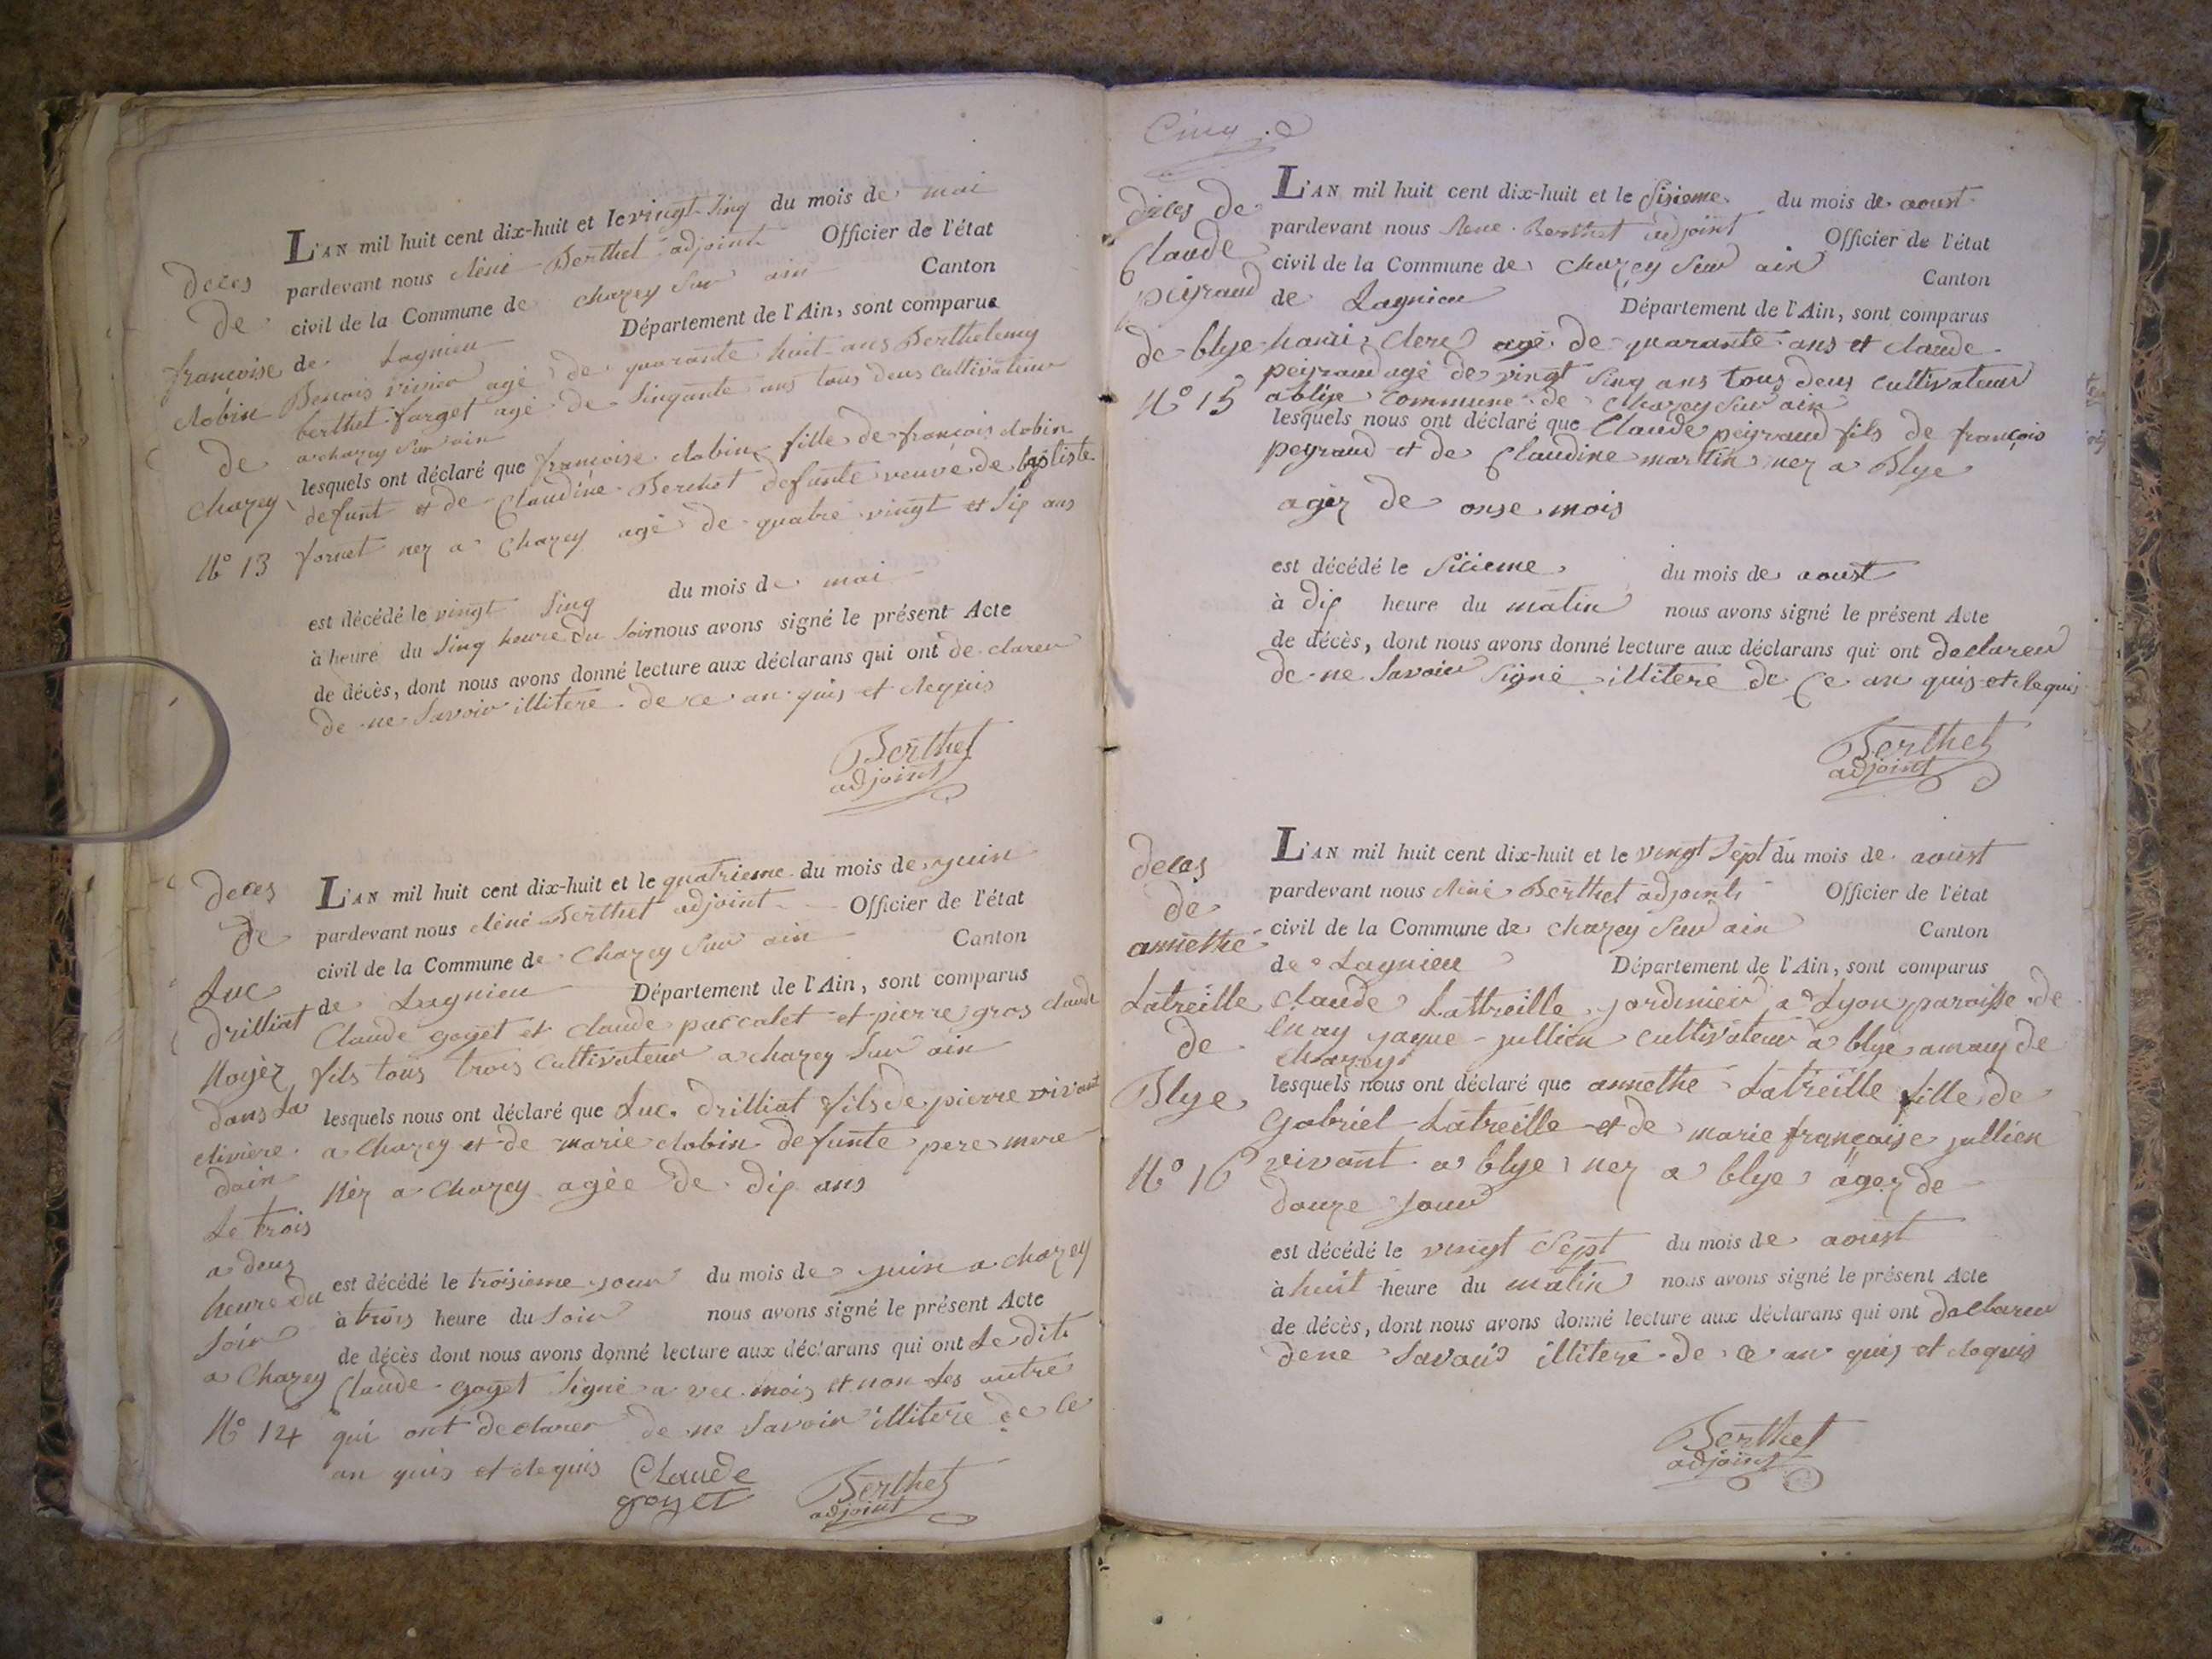 deces
de
francoise
Robin
de
Chazey
N° 13
L'AN mil huit cent dix-huit et le vingt Sinq du mois de mai
pardevant nous Réné Berthet adjoint Officier de l'état
civil de la Commune de chazey Sur ain Canton
de Lagnieu Département de l'Ain, sont comparus
Benois rivier agé de quarante huit ans Berthelemy
berthet farget agé de Sinqante ans tous deus Cultivateur
a chazey Sur ain
lesquels nous ont déclaré que francoise Robin fille de françois Robin
defunt et de Claudine Berthet defunte veuve de baptiste
fornet nez a Chazey agé de quatre vingt et Six ans
est décédé le vingt Sinq du mois de mai
à heure du Sinq heure Du Soir nous avons signé le présent Acte
de décès, dont nous avons donné lecture aux déclarans qui ont de clarer
de ne Savoir illitere de ce an quis et Requis
Berthet
adjoint
deces
de
Luc
drilliat
Noyèz
dans La
Rivière
dain
Le trois
a deuz
heure du
Soir
a Chazey
N° 14
L'AN mil huit cent dix-huit et le quatrieme du mois de juin
pardevant nous Réné Berthet adjoint Officier de l'état
civil de la Commune de Chazey Sur ain Canton
de Lagnieu Département de l'Ain, sont comparus
Claude goyet et Claude paccalet et pierre gros claude
fils tous trois Cultivateur a chazey Sur ain
lesquels nous ont déclaré que Luc drilliat fils de pierre vivant
a Chazey et de marie Robin defunte pere mere
Nèz a Chazey agèe de dix ans
est décédé le troisieme jour du mois de juin a chazey
à trois heure du Soir nous avons signé le présent Acte
de décès dont nous avons donné lecture aux déclarans qui ont Le dit
Claude goyet Signé a vec mois et non Les autre
qui ont declarer de ne Savoir illitere de Ce
an quis et Requis
Claude
goyet
Berthet
adjoint
Cinq
déces de
Claude
peiraud
de blye
N° 15
L'AN mil huit cent dix-huit et le Sisieme du mois de aoust
pardevant nous Rene Berthet adjoint Officier de l'état
civil de la Commune de Chazey Sur ain Canton
de Lagnieu Département de l'Ain, sont comparus
Clerc agé de quarante ans et claude
peiraud agé de vingt Sinq ans tous deus Cultivateur
a blye Commune de Chazey Sur ain
lesquels nous ont déclaré que Claude peiraud fils de françois
peyraud et de Claudine martin nez a Blye
agéz de onse mois
est décédé le Sisieme du mois de aoust
à dix heure du matin nous avons signé le présent Acte
de décès, dont nous avons donné lecture aux déclarans qui ont declarer
de ne Savoir Signé illitere de Ce an quis et Requis
Berthet
adjoint
deces
de
annethe
Latreille
de
Blye
N° 16
L'AN mil huit cent dix-huit et le vingt Sept du mois de aoust
pardevant nous Réné Berthet adjoint Officier de l'état
civil de la Commune de Chazey Sur ain Canton
de Lagnieu Département de l'Ain, sont comparus
Claude Lattreille jardinier a Lyon paroisse de
jaque jullien cultivateur a blye de
Chazey
lesquels nous ont déclaré que annethe Latreille fille de
Gabriel Latreille et de marie françaisse jullien
vivant a blye nez a blye agez de
douze jour
est décédé le vingt Sept du mois de aoust
à huit heure du matin nous avons signé le présent Acte
de décès, dont nous avons donné lecture aux déclarans qui ont declarer
de ne Savoir illitere de ce an quis et Requis
Berthet
adjoint